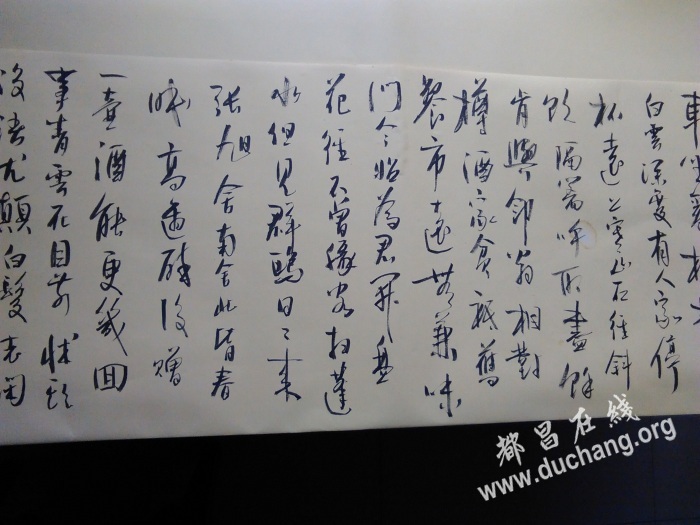 車坐爱枫
白雲深處有人家停
杯遠上寒山石径斜
飲隔籬呼取盡餘
肯與邻翁相對
樽酒家貧衹舊
餐市遠無兼味
门今始為君開盤
花径不曾缘客扫蓬
水但見群鷗日々来
張旭舍南舍北皆春
眠高適醉後贈
一壶酒能更幾回
事青雲在目前床頭
後語尤顛白髮老闲
都昌在线
www.duchang.org